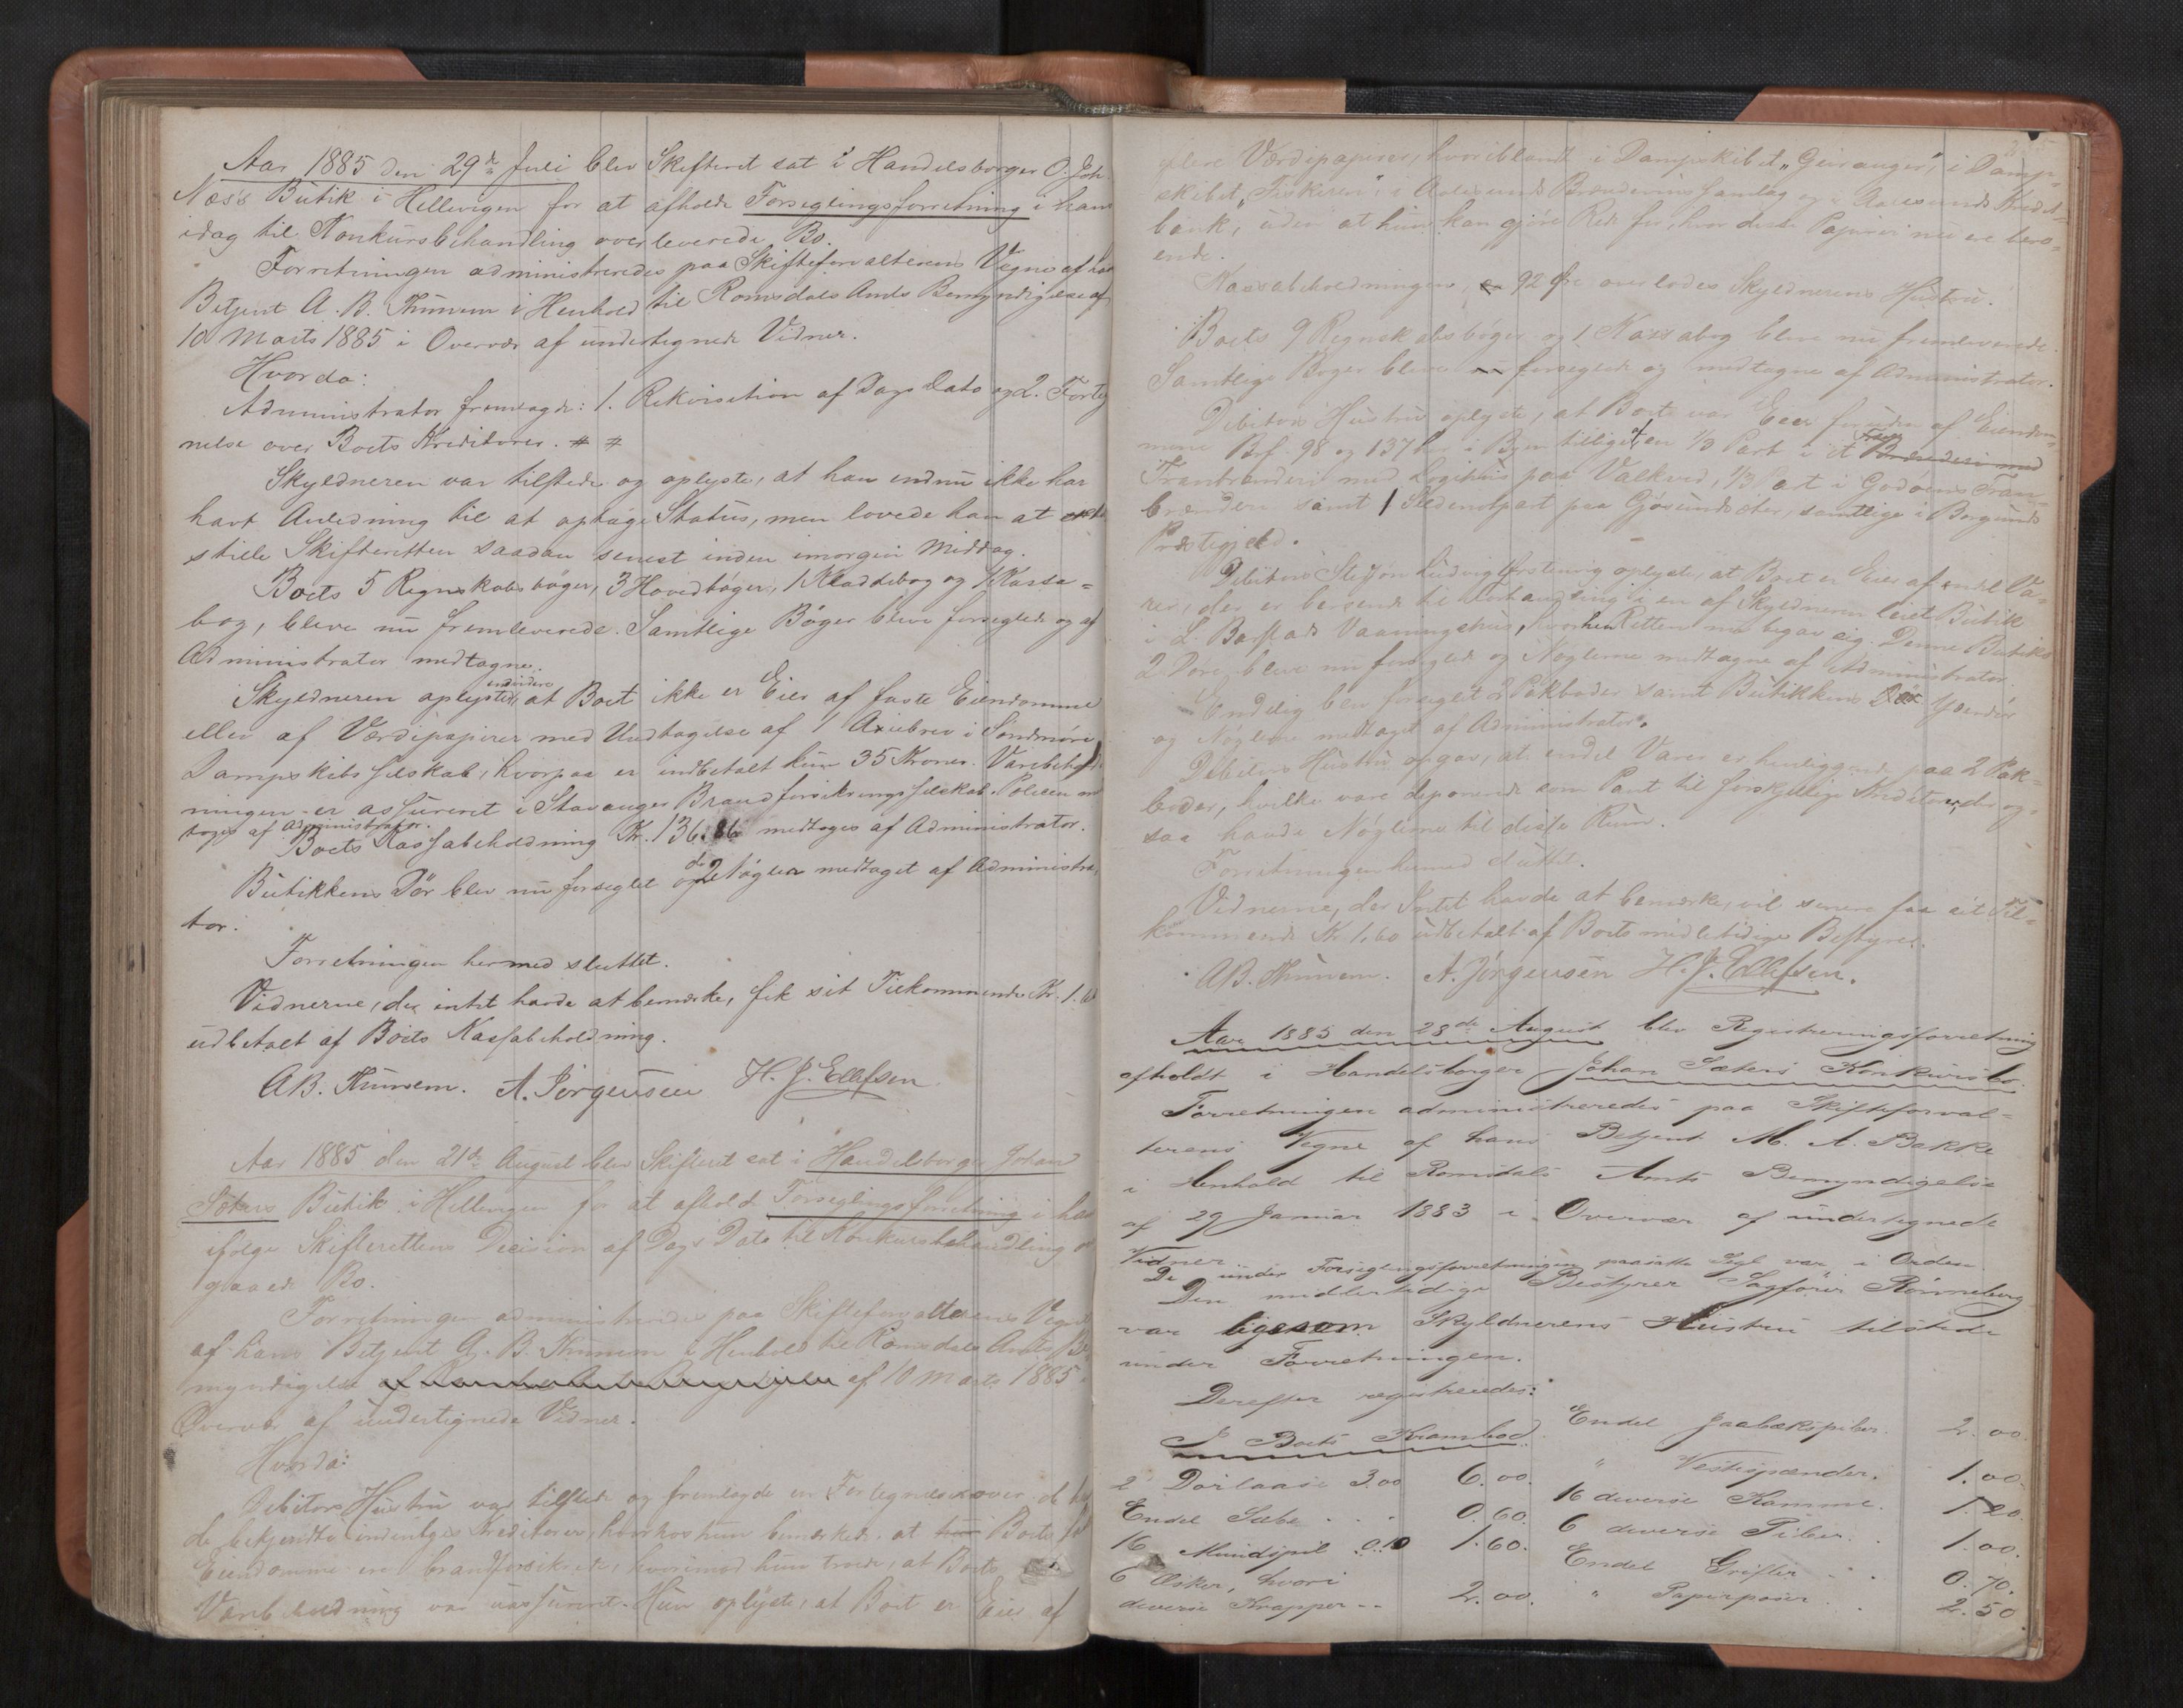 Aar 1885 den 29de Juli blev Skifteret sat i Handelsborger O. Joh
Næss Butik i Hellevigen for at afholde Forseglingsforretning i hans
idag til Konkursbehandling overleverede Bo.
Forretningen administreredes paa Skifteforvalterens Vegne af hans
Betjent A. B. Thinvem i Henhold til Romsdals Amts Bemyndigelse af
10 Marts 1885 i Overvær af undertegnede Vidner.
Hvorda:
Administrator fremlagde: 1. Rekvisition af Dags Dato og 2. Forteg
nelse over Boets Kreditorer. # #
Skyldneren var tilstede og oplyste, at han endnu ikke har
havt Anledning til at optage Status, men lovede han at
stille Skifteretten saadan senest inden imorgen Middag.
Boets 5 Regnskabsbøger, 3 Hovedbøger, 1 Kladdebog og 1 Kasse=
bog, bleve nu fremleverede. Samtlige Bøger bleve forseglede og af
Administrator medtagne.
Skyldneren oplyste endvidere, at Boet ikke er Eier af faste Eiendomme
eller af Værdipapirer med Undtagelse af 1 Axiebrev i Søndmøre
Dampskibsselskab, hvorpaa er indbetalt kun 35 Kroner. Varebehold
ningen er assureret i Stavanger Brandforsikringsselskab. Policen med
toges af Administrator.
Boets Kassabeholdning Kr. 136.86 medtoges af Administrator.
Butikkens Dør blev nu forseglet og de 2 Nøgler medtaget af Administra
tor.
Forretningen hermed sluttet.
Vidnerne, der intet havde at bemærke, fik sit Tilkommende Kr. 1.60
udbetalt af Boets Kassabeholdning.
AB. Thinvem. A. Jørgensen H. J. Ellefsen
Aar 1885 den 21de August blev Skifteret sat i Handelsborger Johan
Sæters Butik i Hellevigen for at afholde Forseglingsforretning i hans
ifølge Skifterettens Decision af Dags Dato til Konkursbehandling over
gaaede Bo.
Forretningen administreredes paa Skifteforvalterens Vegne
af hans Betjent A. B. Thinvem i Henhold til Romsdals Amts Be
myndigelse af 10 Marts 1885 i
Overvær af undertegnede Vidner.
Hvorda:
Debitors Hustru var tilstede og fremlagde en Fortegnelse over de hen
de bekjendte indenbyes Kreditorer, hvorhos hun bemærkede, at Boets
Eiendomme er brandforsikrede, hvorimod hun troede, at Boets
Varebeholdning var uassureret. Hun oplyste, at Boet er Eier af
flere Værdipapirer, hvoriblandt i Dampskibet "Geiranger", i Damp=
skibet "Fiskeren", i Aalesunds Brænderins Samlag og i Aalesunds Kredit=
bank, uden at hun kan gjøre Rede for, hvor disse Papirer nu ere bero=
ende.
Kassabeholdningen, 92 Øre overlodes Skyldnerens Hustru.
Boets 9 Regnskabsbøger og 1 Kassabog bleve nu fremleverede.
Samtlige Bøger bleve forseglede og medtagne af Administrator.
Debitors Hustru oplyste, at Boet var Eier foruden af Eiendom=
mene Brf. 98 og 137 her i Byen tillige af en 1/3 Part i et Tran Brænderi med
Tranbrænderi med Logihus paa Valkved, 1/3 Part i Godøens Tran=
brænderi samt 1 Stedendpart paa Gjøsundsæter, samtlige i Borgunds
Præstegjeld.
Debitors Stefsøn Ludvig oplyste, at Boet er Eier af endel Va=
rer, der er beroende til Forhandling i en af Skyldneren leiet Butik
i L. Barstads Vaaningshus, hvorhen Retten nu begav sig. Denne Butiks
2 Døre bleve nu forseglede og Nøglerne medtagne af Administrator.
Endelig blev forseglet 2 Pakboder samt Butikkens
og Nøglerne medtaget af Administrator.
Debitors Hustru opgav, at endel Varer er henliggende paa 2 Pak=
boder, hvilke vare deponerede som Pant til forskjellige Kreditorer, der og=
saa havde Nøglerne til disse Rum.
Forretningen hermed sluttet.
Vidnerne, der Intet havde at bemærke, vil senere faa sit Til=
kommende Kr 1.60 udbetalt af Boets midlertidige Bestyrer.
AB. Thinvem. A. Jørgensen H. J. Ellefsen.
Aar 1885 den 28de August blev Registreringsforretning
afholdt i Handelsborger Johan Sæters Konkursbo.
Forretningen administreredes paa Skifteforval=
terens Vegne af hans Betjent M. A. Bakke
i Henhold til Romsdals Amts Bemyndigelse
af 29 Januar 1883 i Overvær af undertegnede
Vidner.
De under Forseglingsforretningen paasatte Segl var i Orden.
Den midlertidige Bestyrer Sagfører Rønneberg
var ligesom Skyldnerens Hustru tilstede
under Forretningen.
Derefter registreredes:
I Boets Krambod.
2 Dørlaase 3.00 6.00.
Endel Sæbe . . . 0.60.
16 Mundspil 0.10 1.60.
6 Æsker, hvori
diverse Knapper -- 2.00.
Endel Jaabækspiber. 2.00.
" Vestespænder. 1.00.
16 diverse Kamme. 1.20.
6 diverse Piber. . 1.00.
Endel Grifler . . . 0.70.
" Papirposer . . 2.50